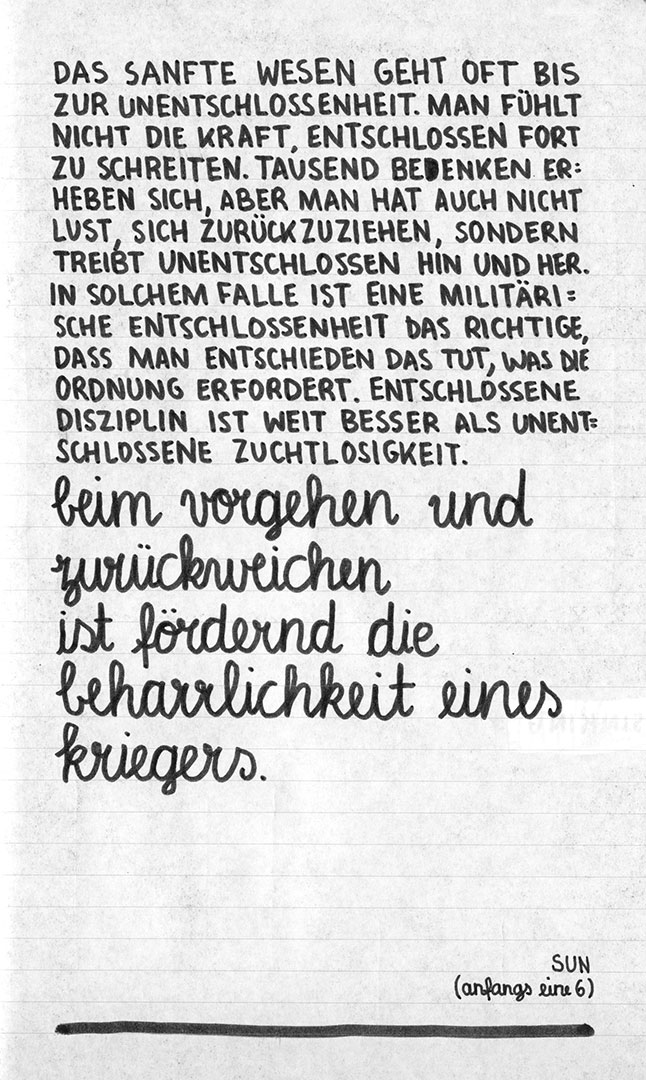 DAS SANFTE WESEN GEHT OFT BIS
ZUR UNENTSCHLOSSENHEIT. MAN FÜHLT
NICHT DIE KRAFT, ENTSCHLOSSEN FORT
ZU SCHREITEN. TAUSEND BEDENKEN ER=
HEBEN SICH, ABER MAN HAT AUCH NICHT
LUST, SICH ZURÜCKZUZIEHEN, SONDERN
TREIBT UNENTSCHLOSSEN HIN UND HER.
IN SOLCHEM FALLE IST EINE MILITÄRI=
SCHE ENTSCHLOSSENHEIT DAS RICHTIGE,
DASS MAN ENTSCHIEDEN DAS TUT, WAS DIE
ORDNUNG ERFORDERT. ENTSCHLOSSENE
DISZIPLIN IST WEIT BESSER ALS UNENT=
SCHLOSSENE ZUCHTLOSIGKEIT.
beim vorgehen und
zurückweichen
ist fördernd die
beharrlichkeit eines
kriegers.
SUN
(anfangs eine 6)